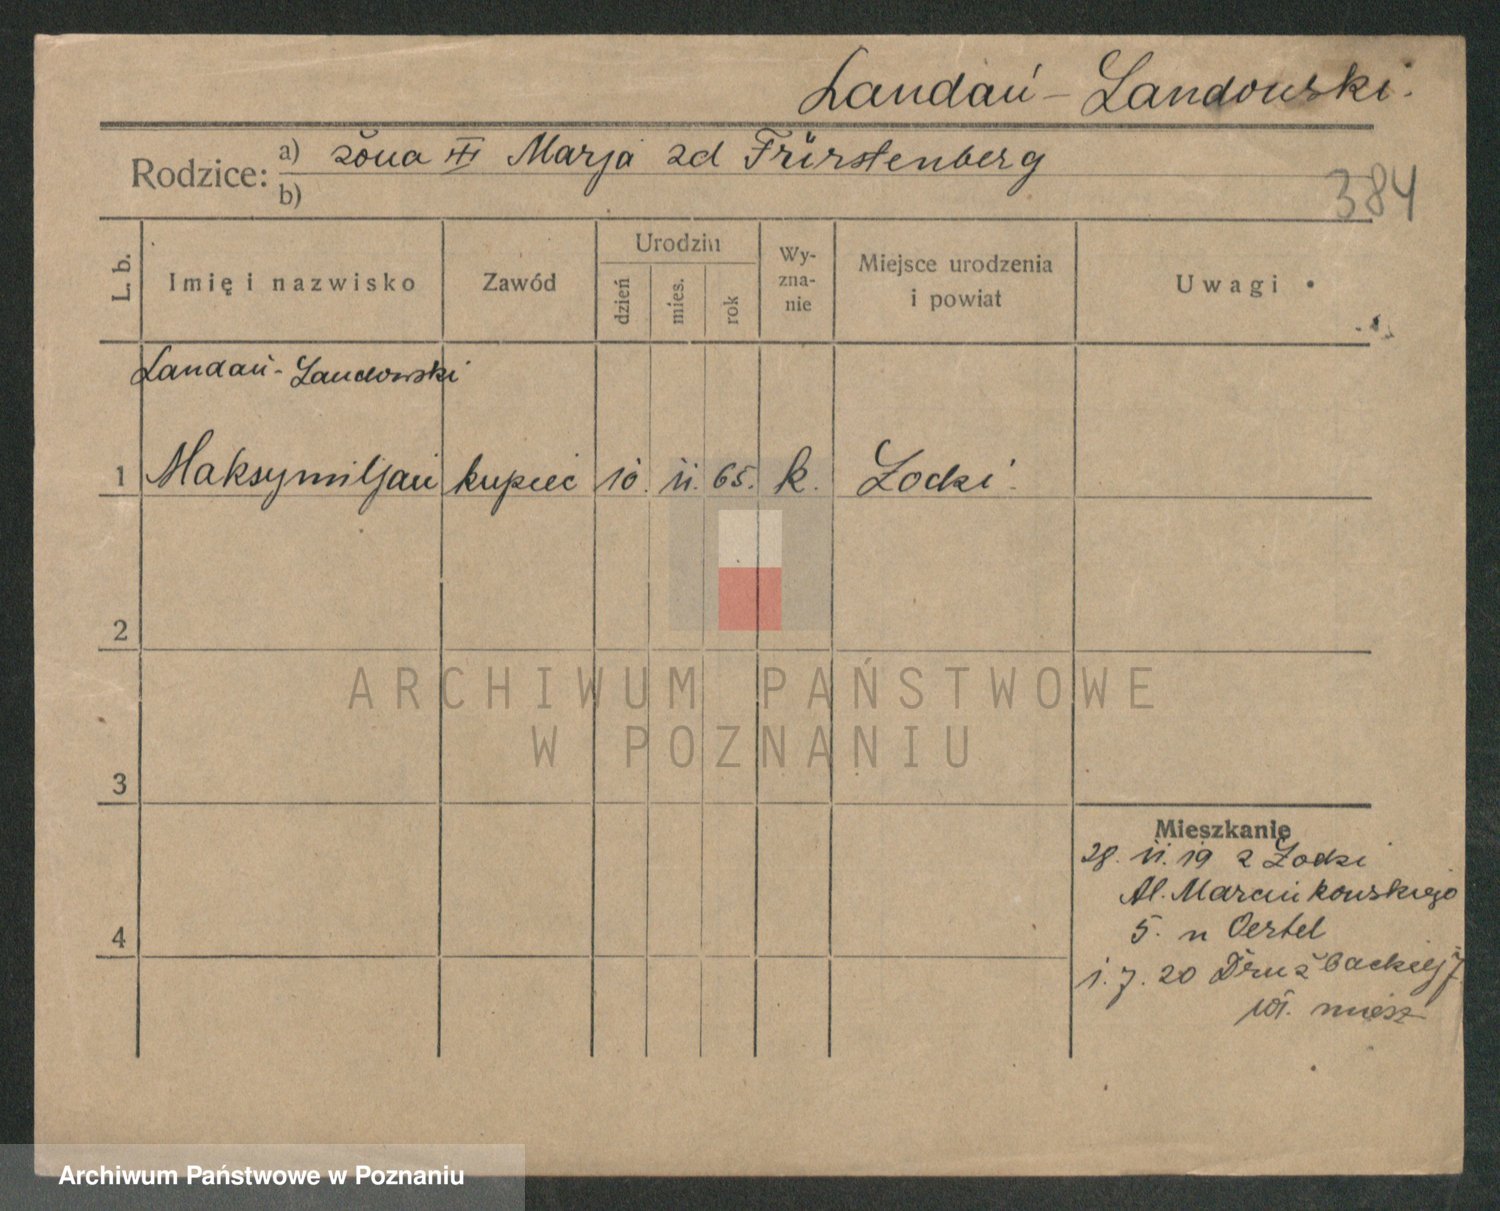 Landaú - Landowski.
Rodzice: a) żona III Marja zd Fürstenberg
b)
384
L. b.
Imię i nazwisko
Zawód
Urodziu
dzień
mies.
rok
Wy-
zna-
nie
Miejsce urodzenia
i powiat
Uwagi
Landaú - Landowski
1 Maksymiljan kupiec 10. 11. 65. k. Łodzi.
2
3
4
Mieszkanie
28. 11. 19 z Łodzi
Al. Marcinkowskiego
5. u Oertel
1. 7. 20 Drużbackiej 7
wł. miesz
ARCHIWUM PAŃSTWOWE
W POZNANIU
Archiwum Państwowe w Poznaniu